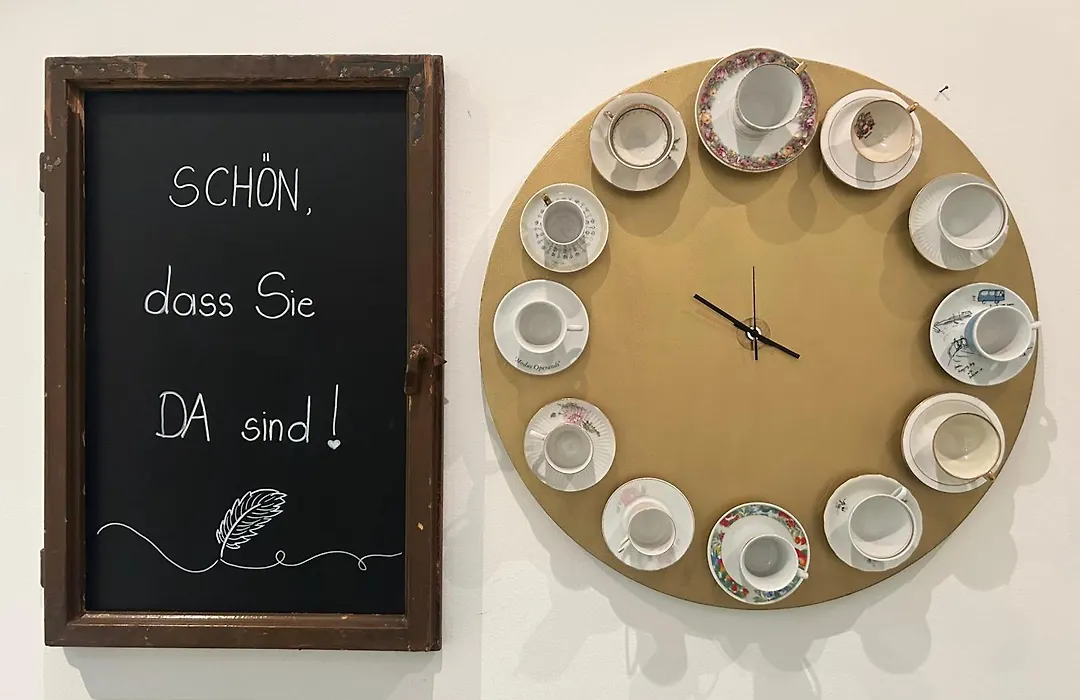 SCHÖN,
dass Sie
DA sind!
"Modus Operandi"